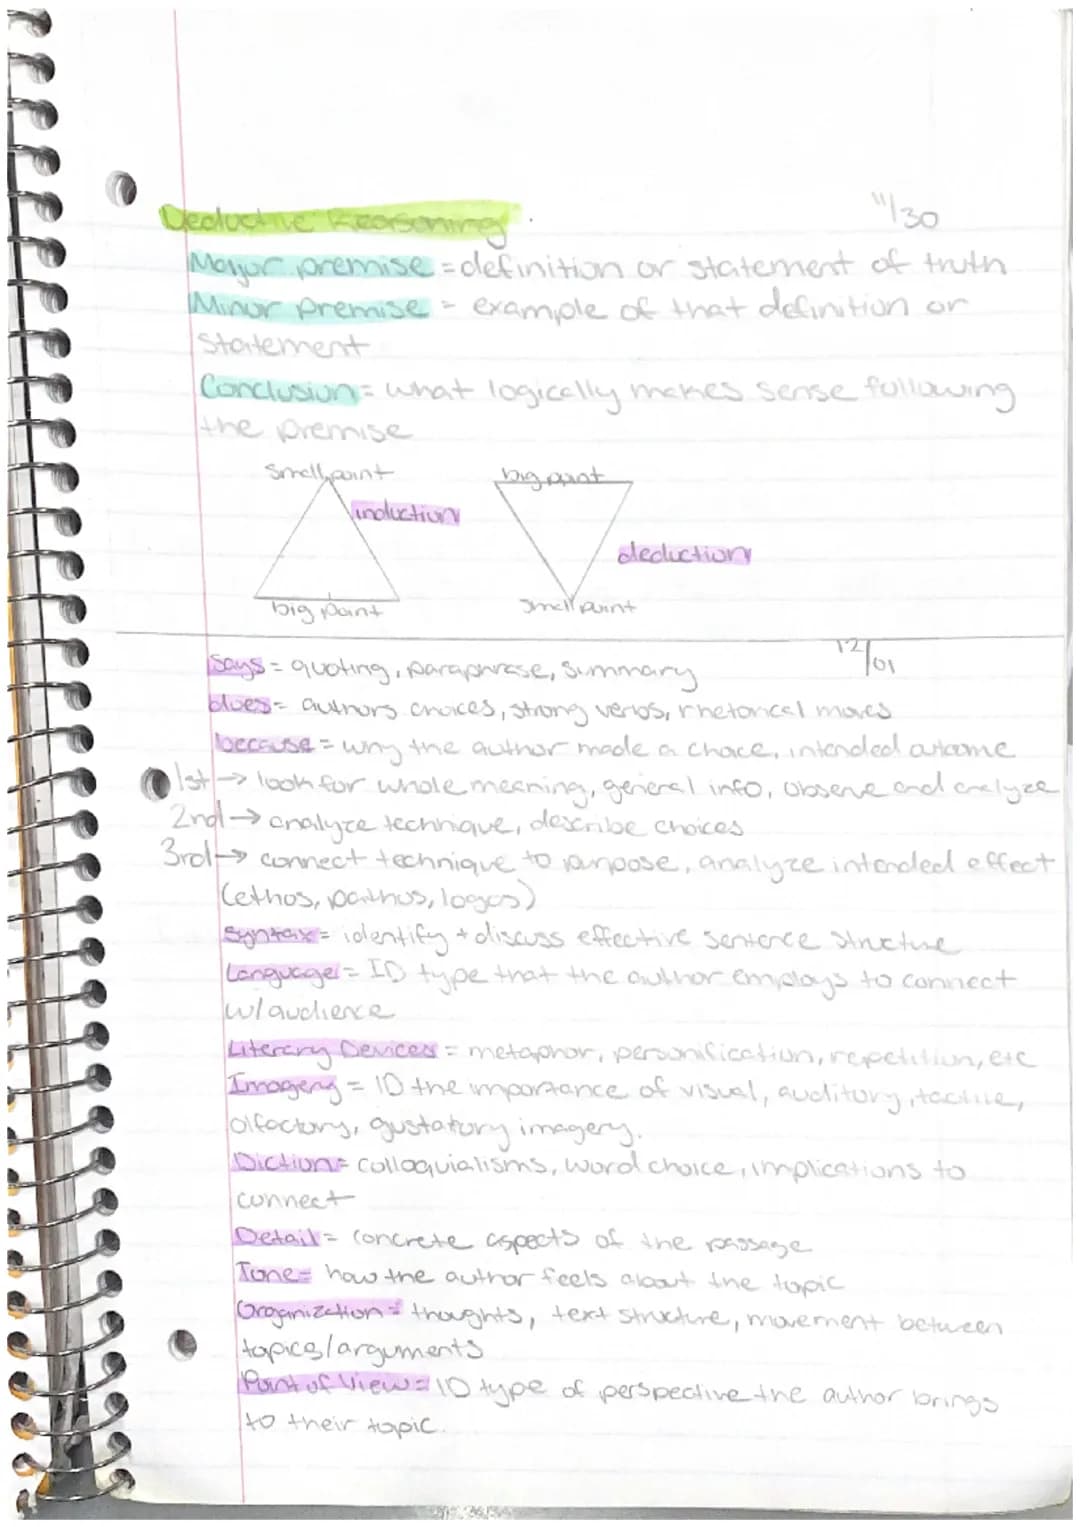 Deductive Reasoning
11/30
Major premise = definition or statement of truth
Minor premise = example of that definition or
statement
Conclusion = what logically makes sense following
the premise
small point
big point
induction
deduction
big point
small point
12/01
Says = quoting, paraphrase, summary
does = authors choices, strong verbs, rhetorical moves
because = why the author made a choice, intended outcome
1st → look for whole meaning, general info, observe and analyze
2nd → analyze technique, describe choices
3rd → connect technique to purpose, analyze intended effect
(ethos, pathos, logos)
Syntax = identify + discuss effective sentence structure
Language = ID type that the author employs to connect
w/ audience
Literary Devices = metaphor, personification, repetition, etc
Imagery = ID the importance of visual, auditory, tactile,
olfactory, gustatory imagery.
Diction = colloquialisms, word choice, implications to
connect
Detail = concrete aspects of the passage
Tone = how the author feels about the topic
Organization = thoughts, text structure, movement between
topics/arguments
Point of View = ID type of perspective the author brings
to their topic.